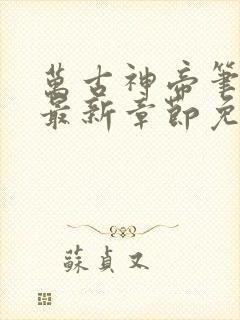 萬古神帝筆
最新章節免
蘇貞又